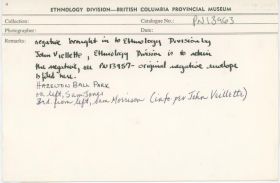 ETHNOLOGY DIVISION—BRITISH COLUMBIA PROVINCIAL MUSEUM
Collection: Catalogue No.: PN13963
Photographer: Date:
Remarks: negative brought in to Ethnology Division by
John Veillette, Ethnology Division is to retain
the negative, see PN13957 - original negative envelope
is filed here.
HAZELTON BALL PARK
on left, Sam Jones
3rd from left, Sam Morrison (info per John Veillette)